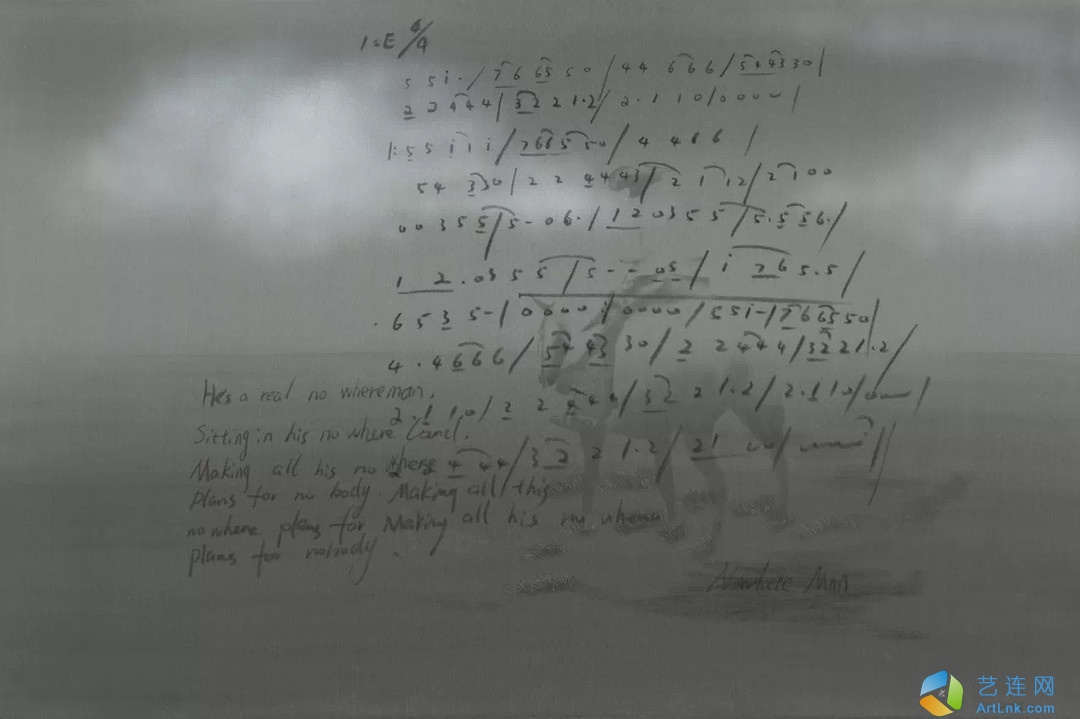 1=E 4/4
5 5 i· / 7 6 6 5 5 0 / 4 4 6 6 6 / 5 4 4 3 3 0 |
2 2 4 4 4 / 3 2 2 1·2 / 2·1 1 0 / 0 0 0 0 |
|: 5 5 i i i / 7 6 6 5 5 0 / 4 4 6 6 /
5 4 3 3 0 / 2 2 4 4 4 3 / 2 1 1 2 / 2 1 0 0
0 0 3 5 5 / 5 - 0 6· / 1 2 0 3 5 5 / 5·5 5 6· /
1 2·0 3 5 5 / 5 - - 0 5 / i 7 6 5·5 /
·6 5 3 5 - / 0 0 0 0 i / 0 0 0 0 / 5 5 i - / 7 6 6 5 5 0 |
4·4 6 6 6 / 5 4 4 3 3 0 / 2 2 4 4 4 / 3 2 2 1·2 /
Hes a real no whereman.
2·1 1 0 / 2 2 4 4 4 / 3 2 2 1·2 / 2·1 1 0 /
Sitting in his no where Land.
4 4 4 / 3 2 2 1·2 / 2 1
Making all his no where
plans for no body. Making all this
no where plans for Making all his no where
plans for nobody.
Nowhere Man
艺连网
ArtLnk.com